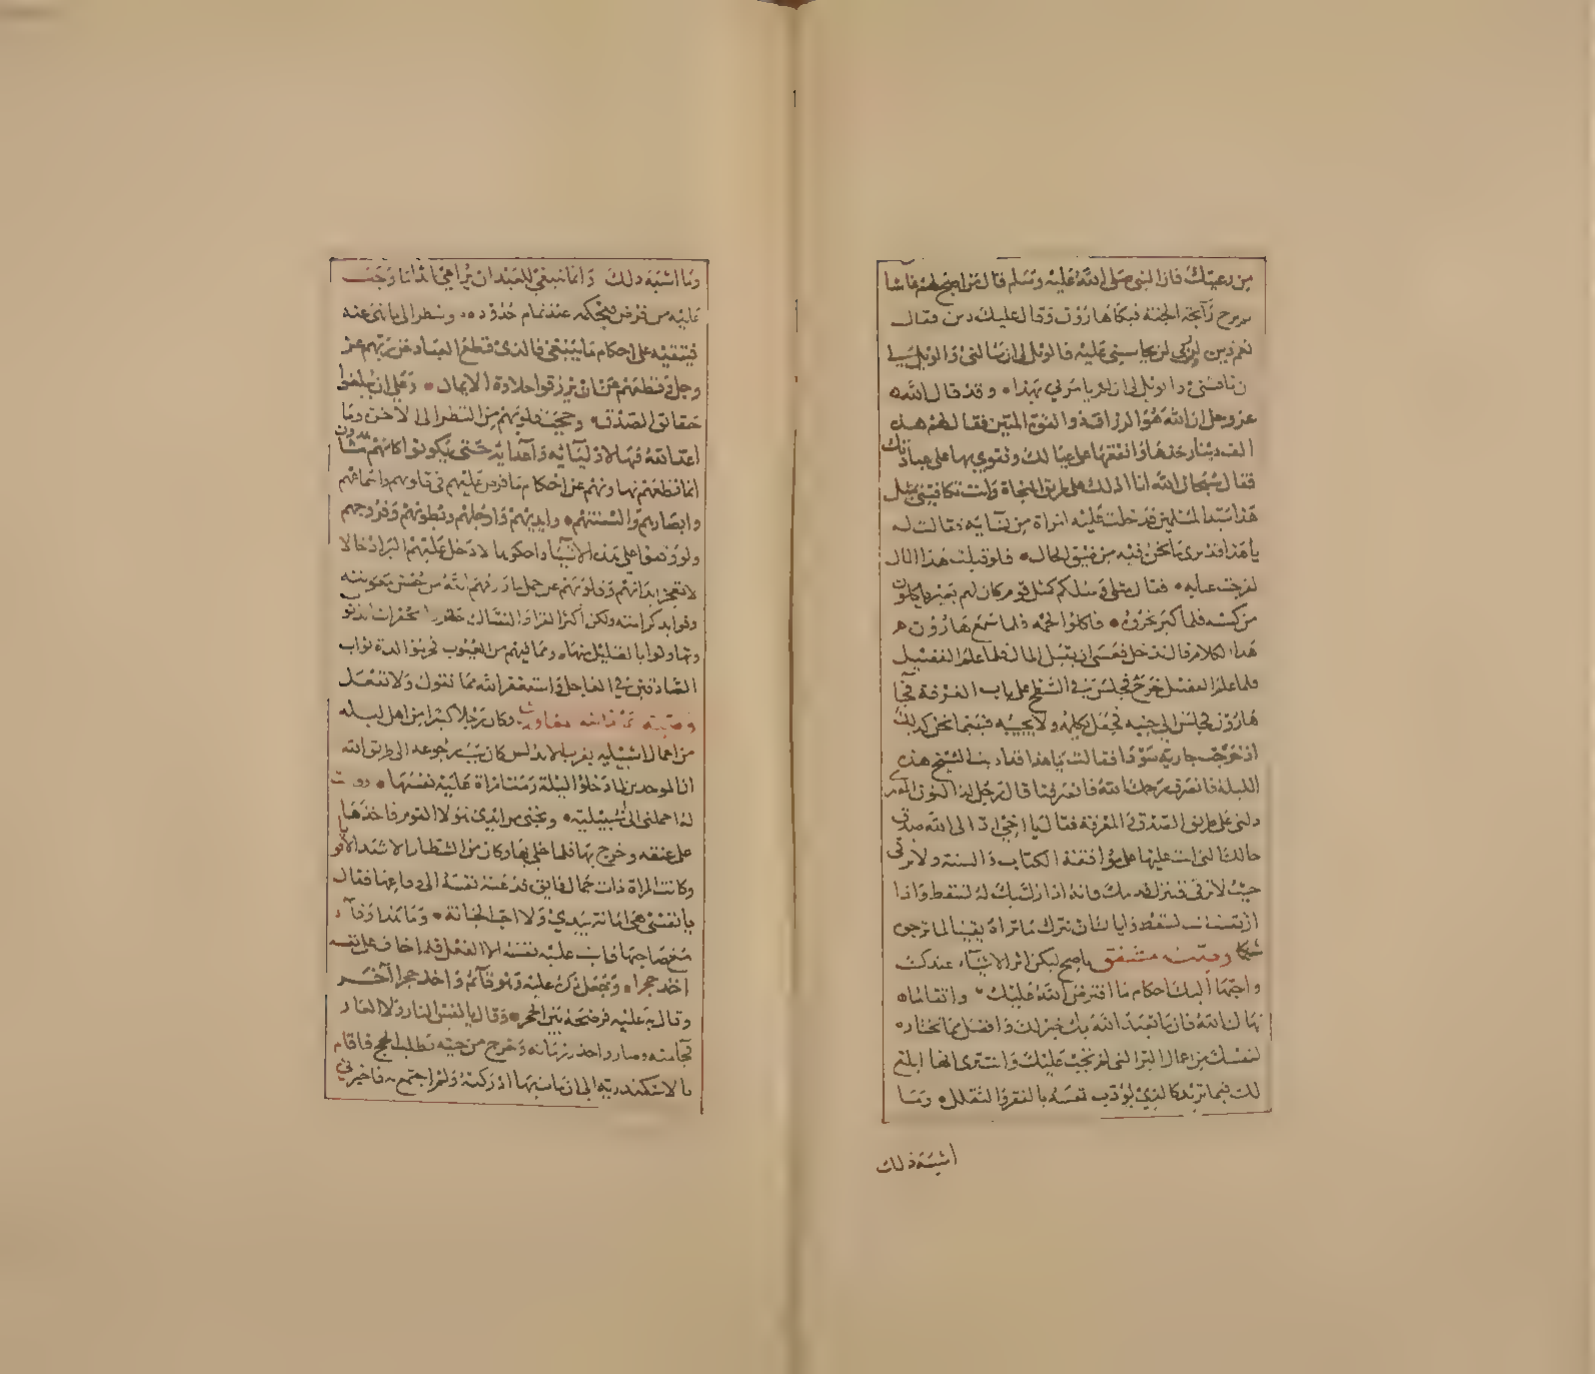 من رعيتك فان النبي صلى الله عليه وسلم قال من اصبح لهم غاشا
لم يرح رائحة الجنة فبكا هارون وقال عليك دين فقال
نعم دين لربي لم يحاسبني عليه فالويل لي ان سالني والويل لي
ان ناقشني والويل لي ان لم يامرني بهذا وقد قال الله
عز وجل ان الله هو الرزاق ذو القوة المتين فقال لهم هذه
الف دينار خذها وانفقها على عيالك وتقوي بها على عبادتك
فقال سبحان الله انا ادلك على طريق النجاة وانت تكافيني بمثل
هذا فدخلت عليه امراة من نسايه فقالت له
يا هذا قد ترى ما نحن فيه من ضيق الحال فلو قبلت هذا المال
لفرجت عنا به فقال مثلي ومثلكم كمثل قوم كان لهم بعير ياكلون
من كسبه فلما كبر نحروه فاكلوا لحمه فلما سمع هارون
هذا الكلام قال ندخل فعسى ان يقبل المال فلما علم الفضيل
فلما علم الفضيل خرج فجلس في السطح على باب الغرفة فجا
هارون فجلس الى جنبه فجعل يكلمه ولا يجيبه فبينما نحن كذلك
اذ خرجت جارية سودا فقالت يا هذا قد اذيت الشيخ هذه
الليلة فانصرف يرحمك الله فانصرفنا قال رجل لذا النون المصري
دلني على طريق الصدق والمعرفة فقال يا اخي اد الى الله صدق
حالتك التي انت عليها على موافقة الكتاب والسنة ولا ترقى
حيث لا ترقى فتزل قدمك فانه اذا زل بك لم تسقط واذا
ارتقيت تسقط واياك ان تترك ما تراه يقينا لما ترجوه
شكا وصية مشفق ناصح ليكن اثر الاشياء عندك
واحبها اليك احكام ما افترض الله عليك واتقا ما
نهاك الله فان ما تعبدك الله به خير لك وافضل مما تختاره
لنفسك من اعمال البر التي لم تجب عليك وانت ترى انها ابلغ
لك فيما تريد كالذي يؤدب نفسه بالفقر والتقلل وما
اشبه ذلك
وما اشبه ذلك وانما ينبغي للعبد ان يراعي ابدا ما وجب
عليه من فرض فيحكمه عند تمام حدوده وينظر الى ما نهي عنه
فيتقيه على احكام ما ينبغي فالذي قطع العباد عن ربهم عز
وجل وقطعهم عن ان يرزقوا حلاوة الايمان وعلى ان يبلغوا
حقائق الصدق وحجب قلوبهم من النظر الى الاخرة وما
اعد الله فيها لاوليائه واعدائه حتى يكونوا كانهم مشاهدون
انما قطعهم تهاونهم عن احكام ما فرض عليهم في قلوبهم واسماعهم
وابصارهم والسنتهم وايديهم وارجلهم وبطونهم وفروجهم
ولو وقفوا على هذه الاشياء واحكموها لادخل عليهم البر ادخالا
لا تعجز ابدانهم وقلوبهم عن حمل ما رزقهم الله من حسن معونته
وفوايد كرامته ولكن اكثر القراء والنساك حقروا محقرات الذنوب
وتهاونوا بالقليل منها وما فيهم من العيوب فحرموا لذة ثواب
الصادقين في العاجل واستغفر الله مما نقول ولا نفعل
وكان رجلا كبيرا من اهل لبله
من اعمال اشبيليه بغرب الاندلس كان سبب رجوعه الى طريق الله
ان الموحدين لما دخلوا لبلة رمت امراة عليه نفسها وقالت
له احملني الى اشبيلية ونجني من ايدي هولا القوم فاخذها
على عنقه وخرج بها فلما خلى بها وكان من الشطار الاشداء الاقويا
وكانت المراة ذات جمال فايق فدعته نفسه الى وقاعها فقال
يا نفسي هي امانة بيدي ولا احب الخيانة وما هذا وفاء
مع صاحبها فابت عليه نفسه الا الفعل فلما خاف على نفسه
اخذ حجرا وجعل ذكره عليه وهو قائم واخذ حجرا آخر
وقال به عليه فرضخه بين الحجرين وقال يا نفس النار ولا العار
فجا منه وصار واحد زمانه وخرج من حينه يطلب الحج فاقام
بالاسكندرية الى ان مات بها ادركته ولم اجتمع به فاخبرني